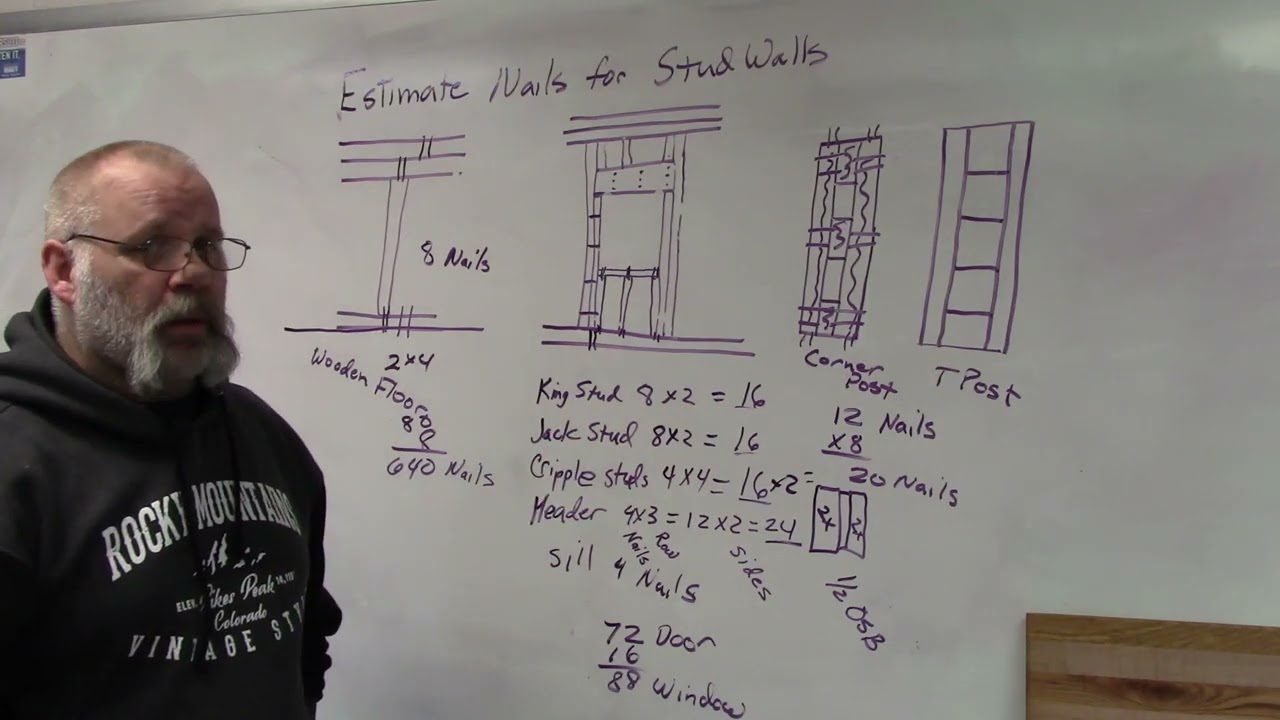 Estimate Nails for Stud Walls
8 Nails
2x4
Wooden Floor
80
8
640 Nails
King Stud 8 x 2 = 16
Jack Stud 8x2 = 16
Cripple studs 4 x 4 = 16 x 2 =
Header 4x3 = 12 x 2 = 24
Nails Row Sides
Sill 4 Nails
72 Door
16
88 Window
Corner Post
12 Nails
x8
20 Nails
2x
2x
1/2 OSB
T Post
ROCKY MOUNTAINS
Pikes Peak
Colorado
VINTAGE